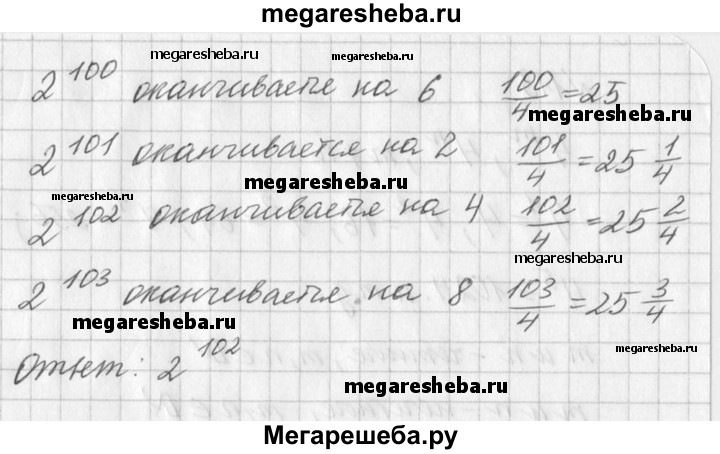 megaresheba.ru
megaresheba.ru megaresheba.ru
2^100 оканчивается на 6 100/4 = 25
megaresheba.ru
2^101 оканчивается на 2 101/4 = 25 1/4
megaresheba.ru
megaresheba.ru
2^102 оканчивается на 4 102/4 = 25 2/4
megaresheba.ru
2^103 оканчивается на 8 103/4 = 25 3/4
megaresheba.ru
megaresheba.ru
Ответ: 2^102
megaresheba.ru
Мегарешеба.ру